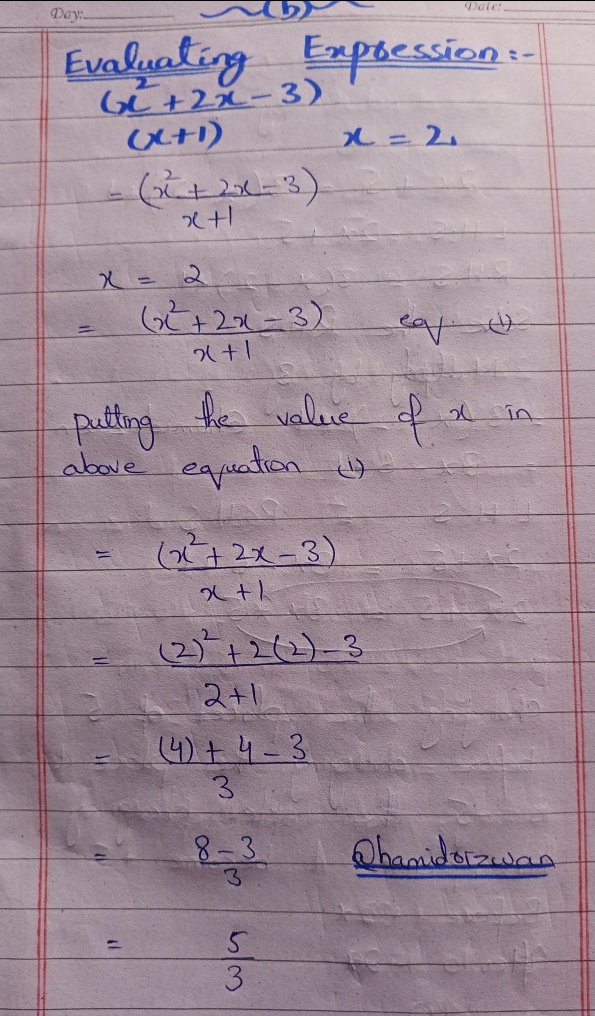 Day:
Date:
(b)
Evaluating Expression :-
(x² + 2x - 3)
(x+1) x = 2.
= (x² + 2x - 3)
x+1
x = 2
= (x² + 2x - 3) eq. (1)
x+1
putting the value of x in
above equation (1)
= (x² + 2x - 3)
x+1
= (2)² + 2(2) - 3
2+1
= (4) + 4 - 3
3
= 8 - 3
3
@hamidrizwan
= 5
3